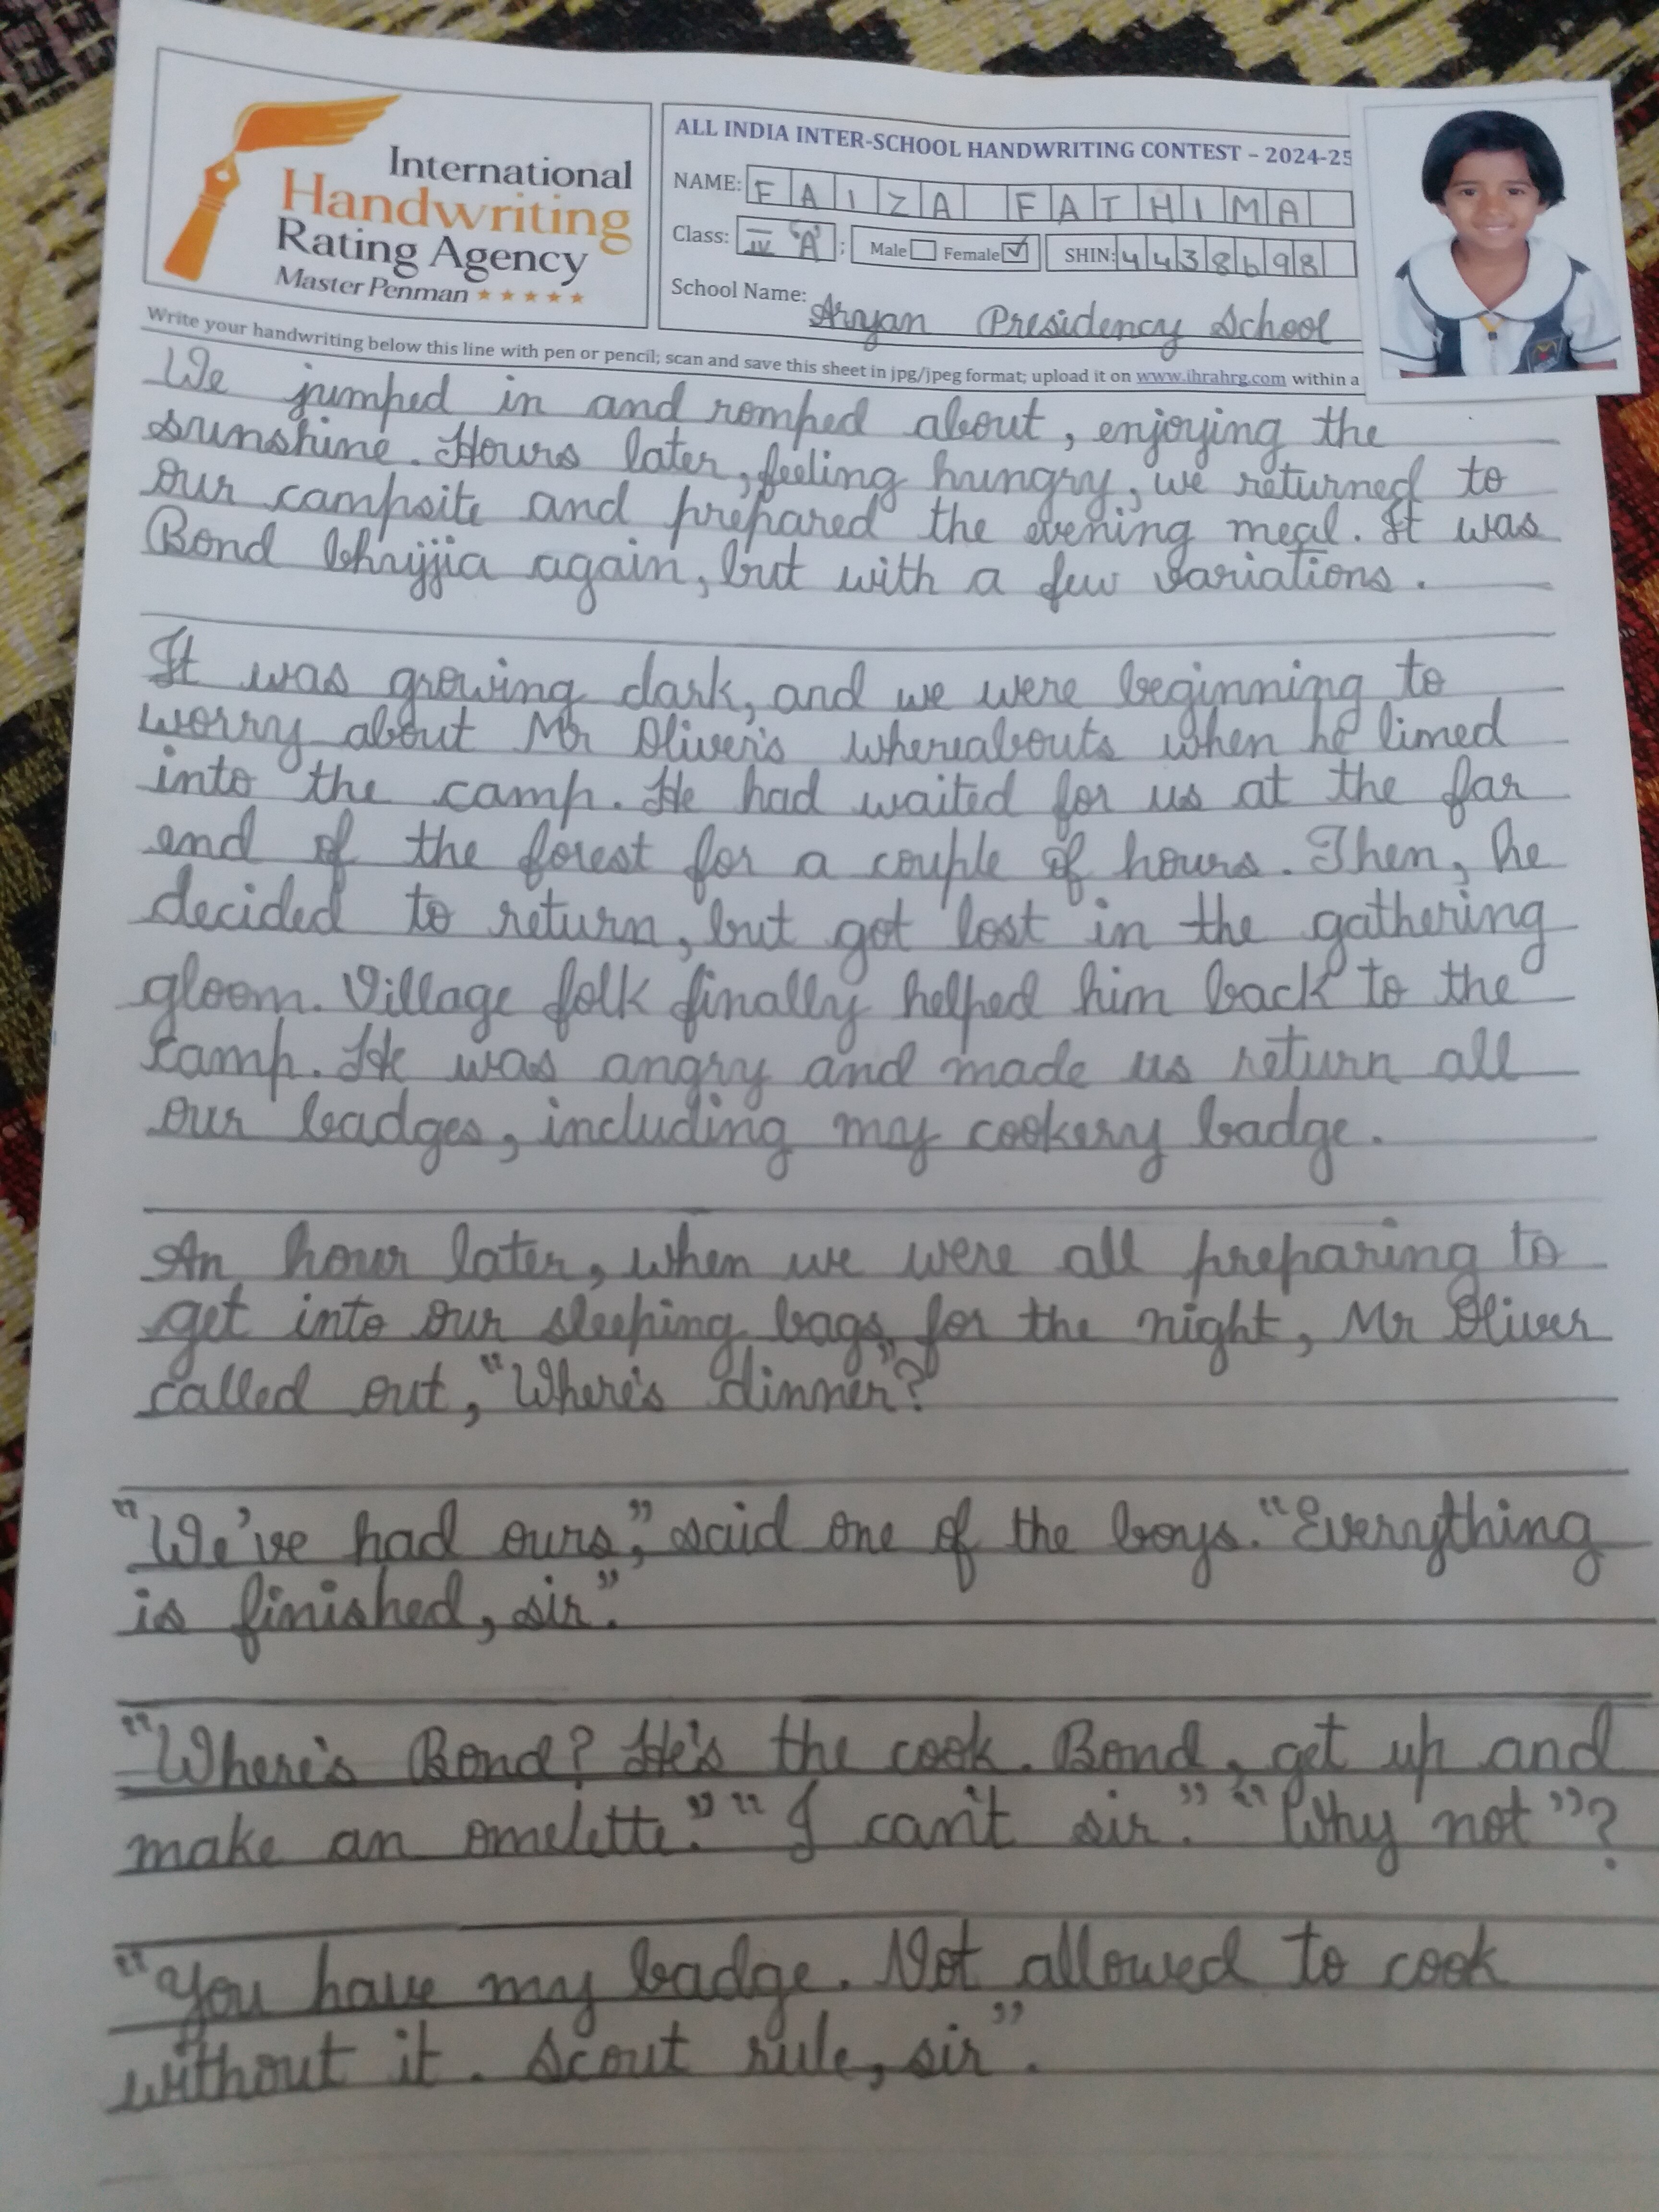 International
Handwriting
Rating Agency
Master Penman
ALL INDIA INTER-SCHOOL HANDWRITING CONTEST – 2024-25
NAME: FAIZA FATHIMA
Class: IV 'A'; Male Female ✓ SHIN: 4438698
School Name: Aryan Presidency School
Write your handwriting below this line with pen or pencil; scan and save this sheet in jpg/jpeg format; upload it on www.ihrahrg.com within a
We jumped in and romped about, enjoying the
sunshine. Hours later, feeling hungry, we returned to
our campsite and prepared the evening meal. It was
Bond bhujjia again, but with a few variations.
It was growing dark, and we were beginning to
worry about Mr Oliver's whereabouts when he limed
into the camp. He had waited for us at the far
end of the forest for a couple of hours. Then, he
decided to return, but got lost in the gathering
gloom. Village folk finally helped him back to the
camp. He was angry and made us return all
our badges, including my cookery badge.
An hour later, when we were all preparing to
get into our sleeping bags for the night, Mr Oliver
called out, "Where's dinner"?
"We've had ours," said one of the boys. "Everything
is finished, sir".
"Where's Bond? He's the cook. Bond, get up and
make an omelette." "I can't sir". "Why not"?
"You have my badge. Not allowed to cook
without it. Scout rule, sir".